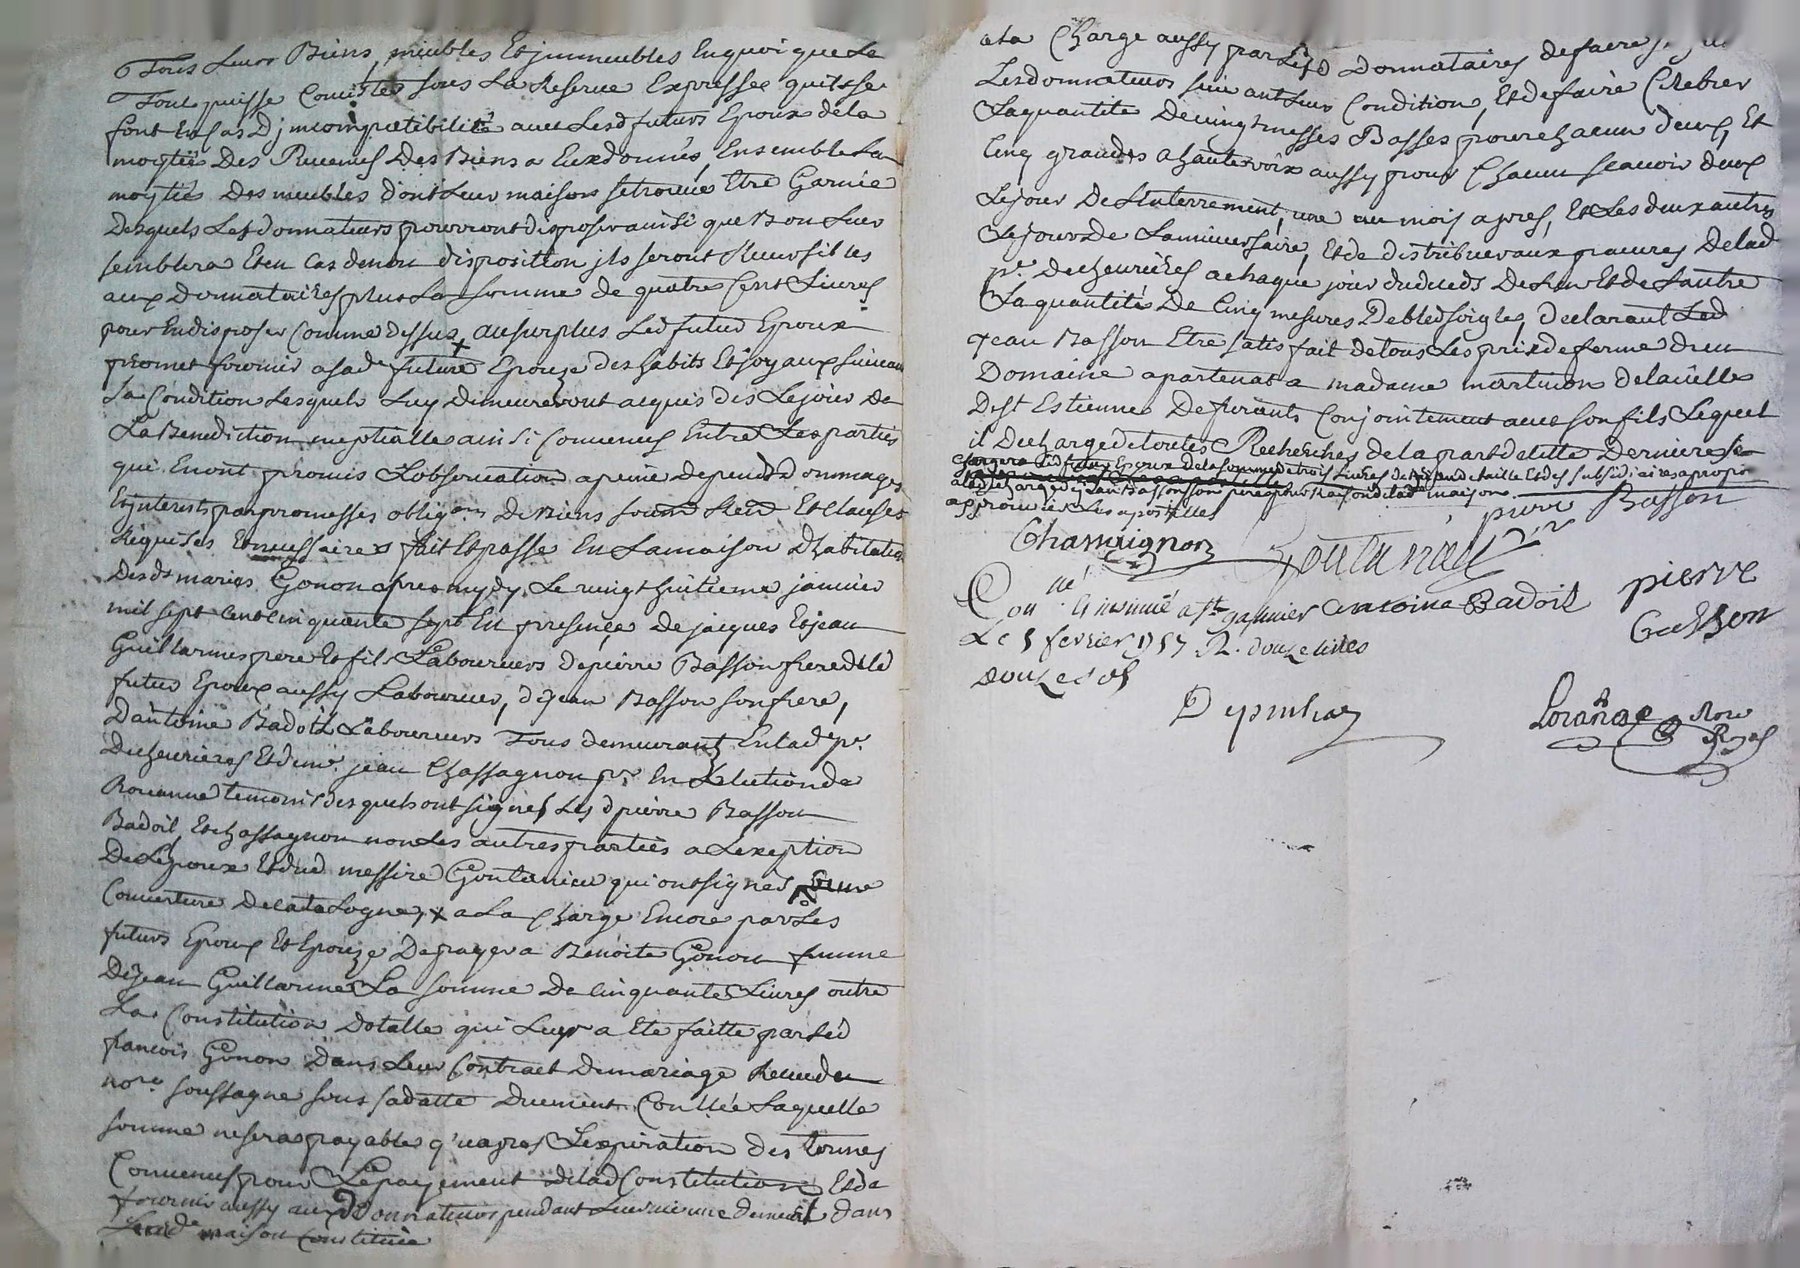 Tous Leurs Biens meubles Et jmmeubles En quoi que Le
Tout puisse Concister sous La Reserve Expresse quils se
font En Cas Djmcompatibilité avec Lesd futurs Epoux dela
moytié Des Revenus Des Biens a Eux donnés, Ensemble La
moytié Des meubles dont Leur maison se trouve Etre Garnie
Desquels Lesd donnateurs pourront disposer ainsi que Bon Leur
semblera Et en Cas de non disposition jls seront
aux donnataires plus La somme de quatre Cent Livres
pour En disposer Comme dessus, au surplus Led futur Epoux
promet fournir a sad future Epouze des habits Et joyaux suivan
sa Condition Lesquels Luy Demeureront acquis des Lejour De
La Benediction nuptialle ainsi Convenus Entre Les parties
qui En ont promis L'observation a peine de depends dommages
Et jnterests par promesses obligons De Biens soum Renr Et Clauses
Requises Et necessaires fait Et passé En La maison d'habitation
Desdt mariés Gonon apres mydy Le vingt huitieme janvier
mil sept Cent Cinquante sept En presence De jacques Et jean
Guillarmes pere Et fils Laboureurs de pierre Basson frere du d
futur Epoux aussy Laboureur, de jean Basson son frere,
D'antoine Badoil Laboureurs Tous demeurants En lad pse
Decheuvrieres Et de me jean Chassagnon pr En L'election de
Roüanne temoins desquels ont signés Lesd pierre Basson
Badoil, Et Chassagnon non Les autres parties a L'exeption
De L'Epoux Et dud messire Goutanieu qui ont signés,
Couverture De Catalogne, x a La Charge Encore par Les
futurs Epoux Et Epouze De payer a Benoite Gonon femme
De jean Guillarme La somme De Cinquante Livres outre
La Constitution Dotalle qui Luy a Eté faitte par Led
francois Gonon Dans Leur Contract De mariage Receu du
nore soussigne sous sa datte Duement Conllée Laquelle
somme ne sera payable qu'apres L'expiration des termes
Convenus pour Le payement de lad Constitution Et de
fournir aussy aux Donnateurs pendant Leur vie une dans
Leurde maison Constituée
a La Charge aussy par Lesd Donnataires de faire
Les donnateurs suivant Leur Condition, Et de faire Celebrer
La quantité De vingt messes Basses pour chacun d'eux, Et
Cinq grandes a haute voix aussy pour Chacun scavoir deux
Le jour De L'enterrement, une au mois apres, Et Les deux autres
Le jour de L'anniversaire, Et de distribuer aux pauvres De lad
pse Decheuvrieres a chaque jour du deuds De L'un Et de L'autre
La quantité De Cinq mesures De bled seigle, declarant Led
jean Basson Etre satisfait de tous Les prix de ferme d'un
Domaine apartenat a madame
De St Estienne De furants Conjointement avec son fils Lequel
il Decharge de toutes Recherches de la part de cette Derniere
Led futur Epoux de la somme de trois Livres de de taille Et des subsidiaires
jean Basson son pere pour Raison de lad maison
approuvé Les apostilles
pierre Basson
Chassaignon
Goutanieu
Conlle Et insinué a St galmier
Antoine Badoil
pierre
Basson
Le 5 fevrier 1757 R. douze livres
Douze sols
Depinhac
Lorange nore
Royal